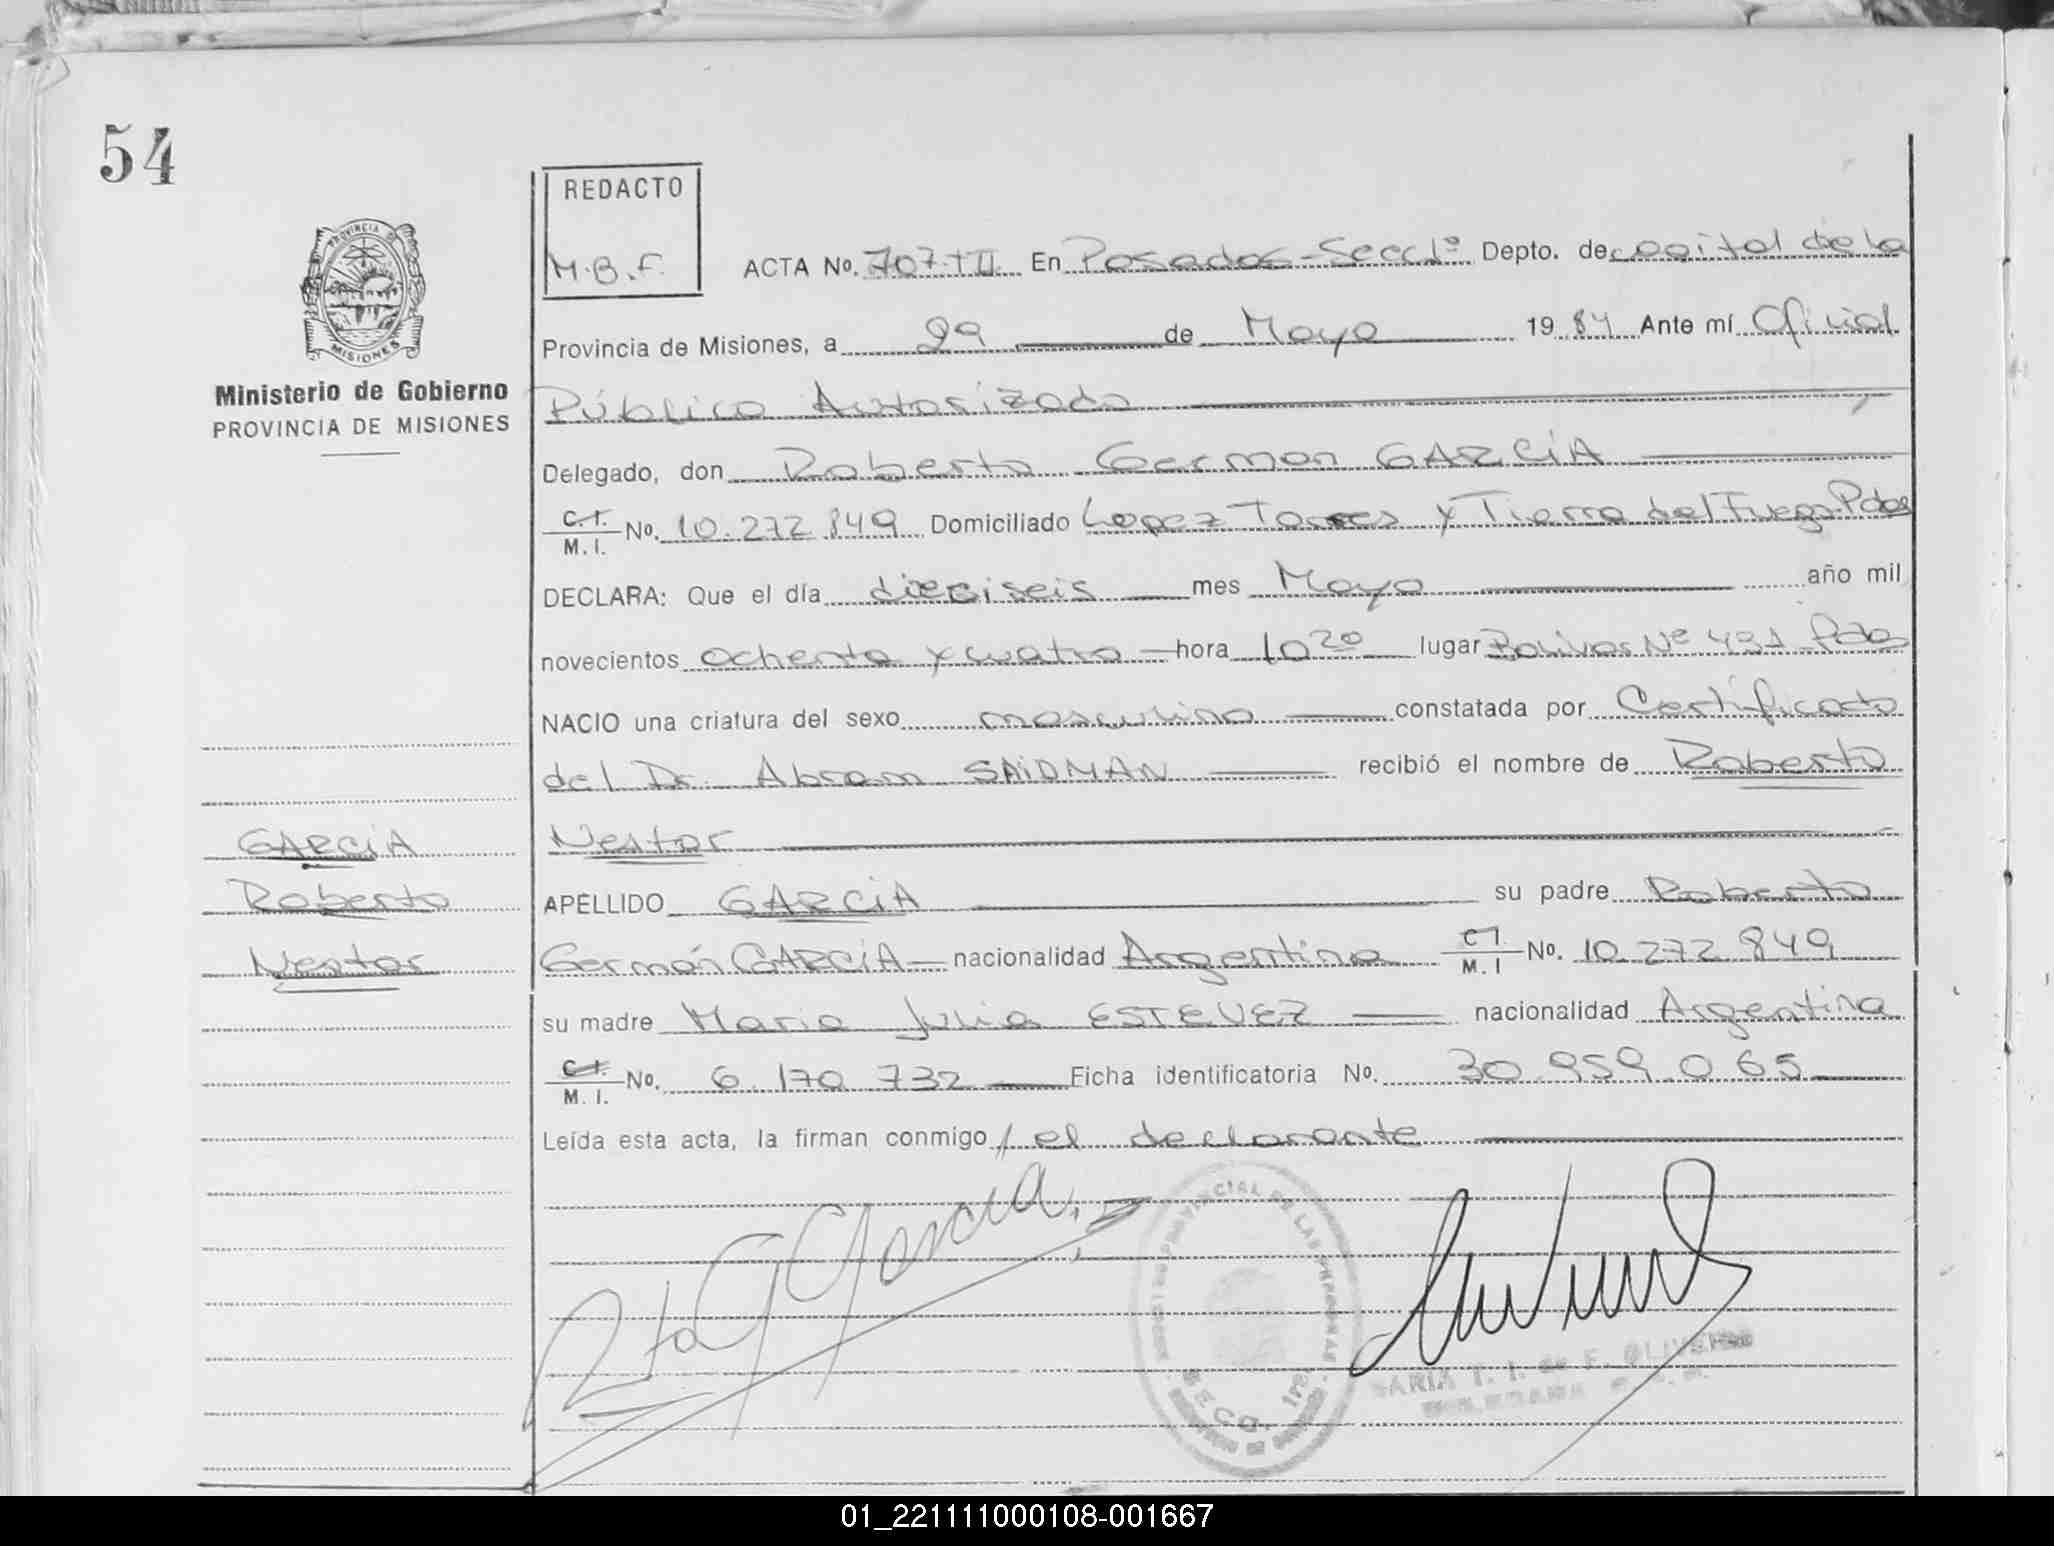 54
REDACTO
M.B.F.
ACTA No. 707-TII En Posadas - Secc 1º Depto. de capital de la
Provincia de Misiones, a 29 de Mayo 1984 Ante mí Oficial
Público Autorizado
Delegado, don Roberto German GARCIA
C.I. / M.I. No. 10.272.849 Domiciliado Lopez Torres y Tierra del Fuego. Pdas
DECLARA: Que el día dieciseis mes Mayo año mil
novecientos ochenta y cuatro hora 10 20 lugar Bolivar Nº 431 Pdas
NACIO una criatura del sexo masculino constatada por Certificado
del Dr. Abram SAIDMAN recibió el nombre de Roberto
Nestor
APELLIDO GARCIA su padre Roberto
Germán GARCIA nacionalidad Argentina C.I. / M.I No. 10.272.849
su madre Maria Julia ESTEVEZ nacionalidad Argentina
C.I. / M.I. No. 6.170.732 Ficha identificatoria No. 30.959.065
Leída esta acta, la firman conmigo, el declarante
PROVINCIA DE
MISIONES
Ministerio de Gobierno
PROVINCIA DE MISIONES
GARCIA
Roberto
Nestor
Rto G Garcia
PROVINCIAL DE LAS PERSONAS
SECC. 1ra
MARIA T. I. de F. OLIVEIRA
01_221111000108-001667